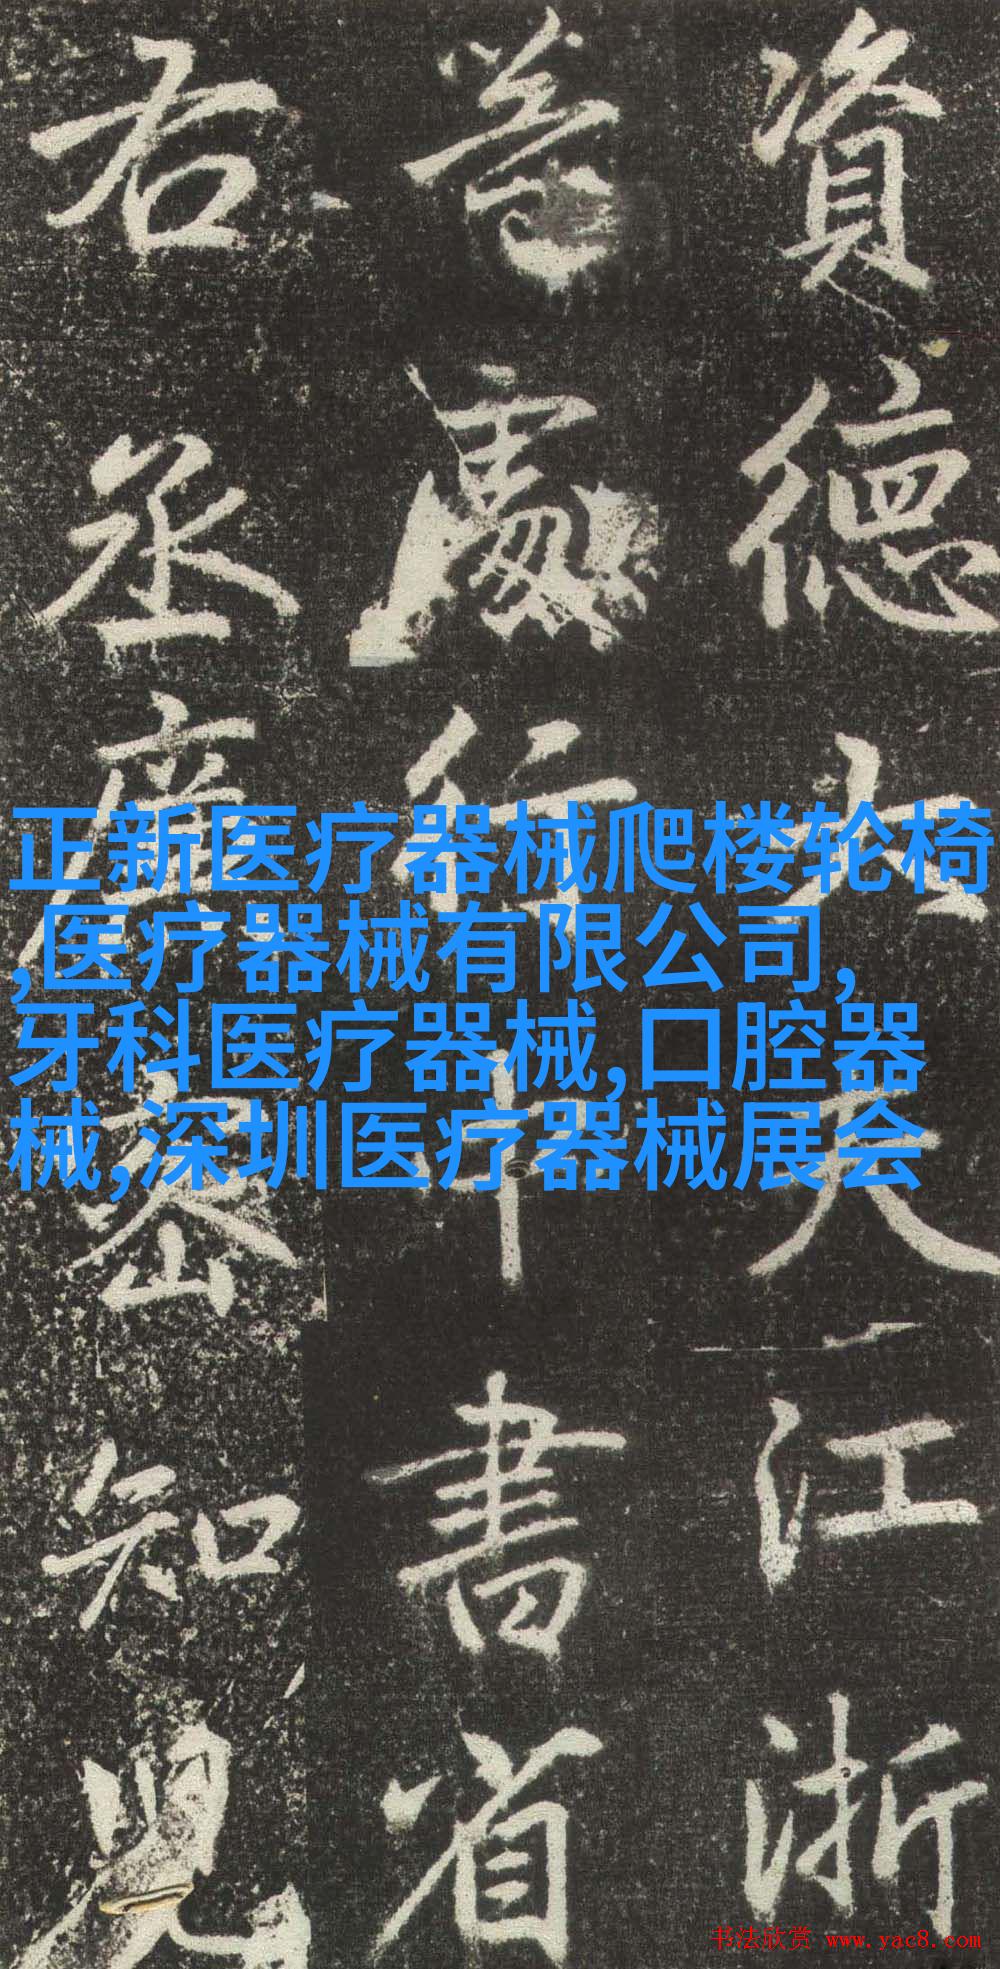 正新医疗器械爬楼轮椅
,医疗器械有限公司,
牙科医疗器械,口腔器
械,深圳医疗器械展会
資德大夫江浙
等處行中書省
右丞廉密知兒
书法欣赏 www.yac8.com